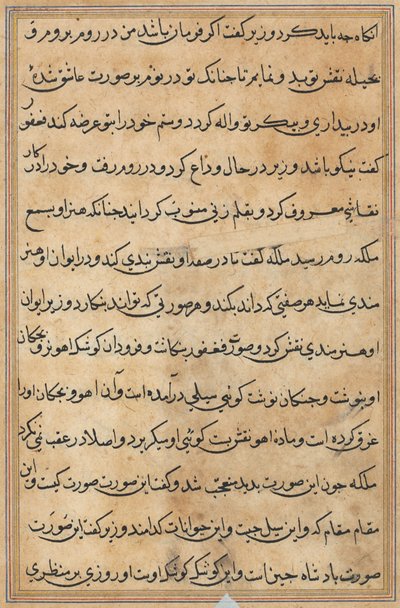 انکاه جه باید کرد وزیر کفت اکر فرمان باشد من در روم بروم و
بحیله نقش تو بد و نمایم تا جنانک تو در نوم بر صورت عاشق شده
او در بیداری و پیکر تو واله کردد و ستم خود را بتو عرضه کند فغفور
کفت نیکو باشد وزیر در حال وداع کرد و در روم رفت و خود را در کار
نقاشی معروف کرد و بقلم زنی منسوب کردانید جنانکه هنر او بسمع
ملکه روم رسید ملکه کفت تا در صفه او نقش بندی کند و در ایوان او هنر
مندی نماید هر صفتی که داند بکند و هر صورتی که تواند بنکارد وزیر ایوان
او هنر مندی نقش کرد و صورت فغفور بنکاشت و فرود ان کوشک اهو بره و بجکان
او بنوشت و جنکان نوشت کوئی سیلی درآمده است و آن اهو و بجکان او را
غرق کرده است و ماده اهو نقش بست کوئی او میکریزد و اصلا در عقب نمی نکرد
ملکه جون این صورت بدید متعجب شد و کفت این صورت صورت کیست و این
مقام مقام که و این سیل جیست و این حیوانات کدامند وزیر کفت این صورت
صورت بادشاه جین است و این کوشک کوشک اوست او روزی بر منظری